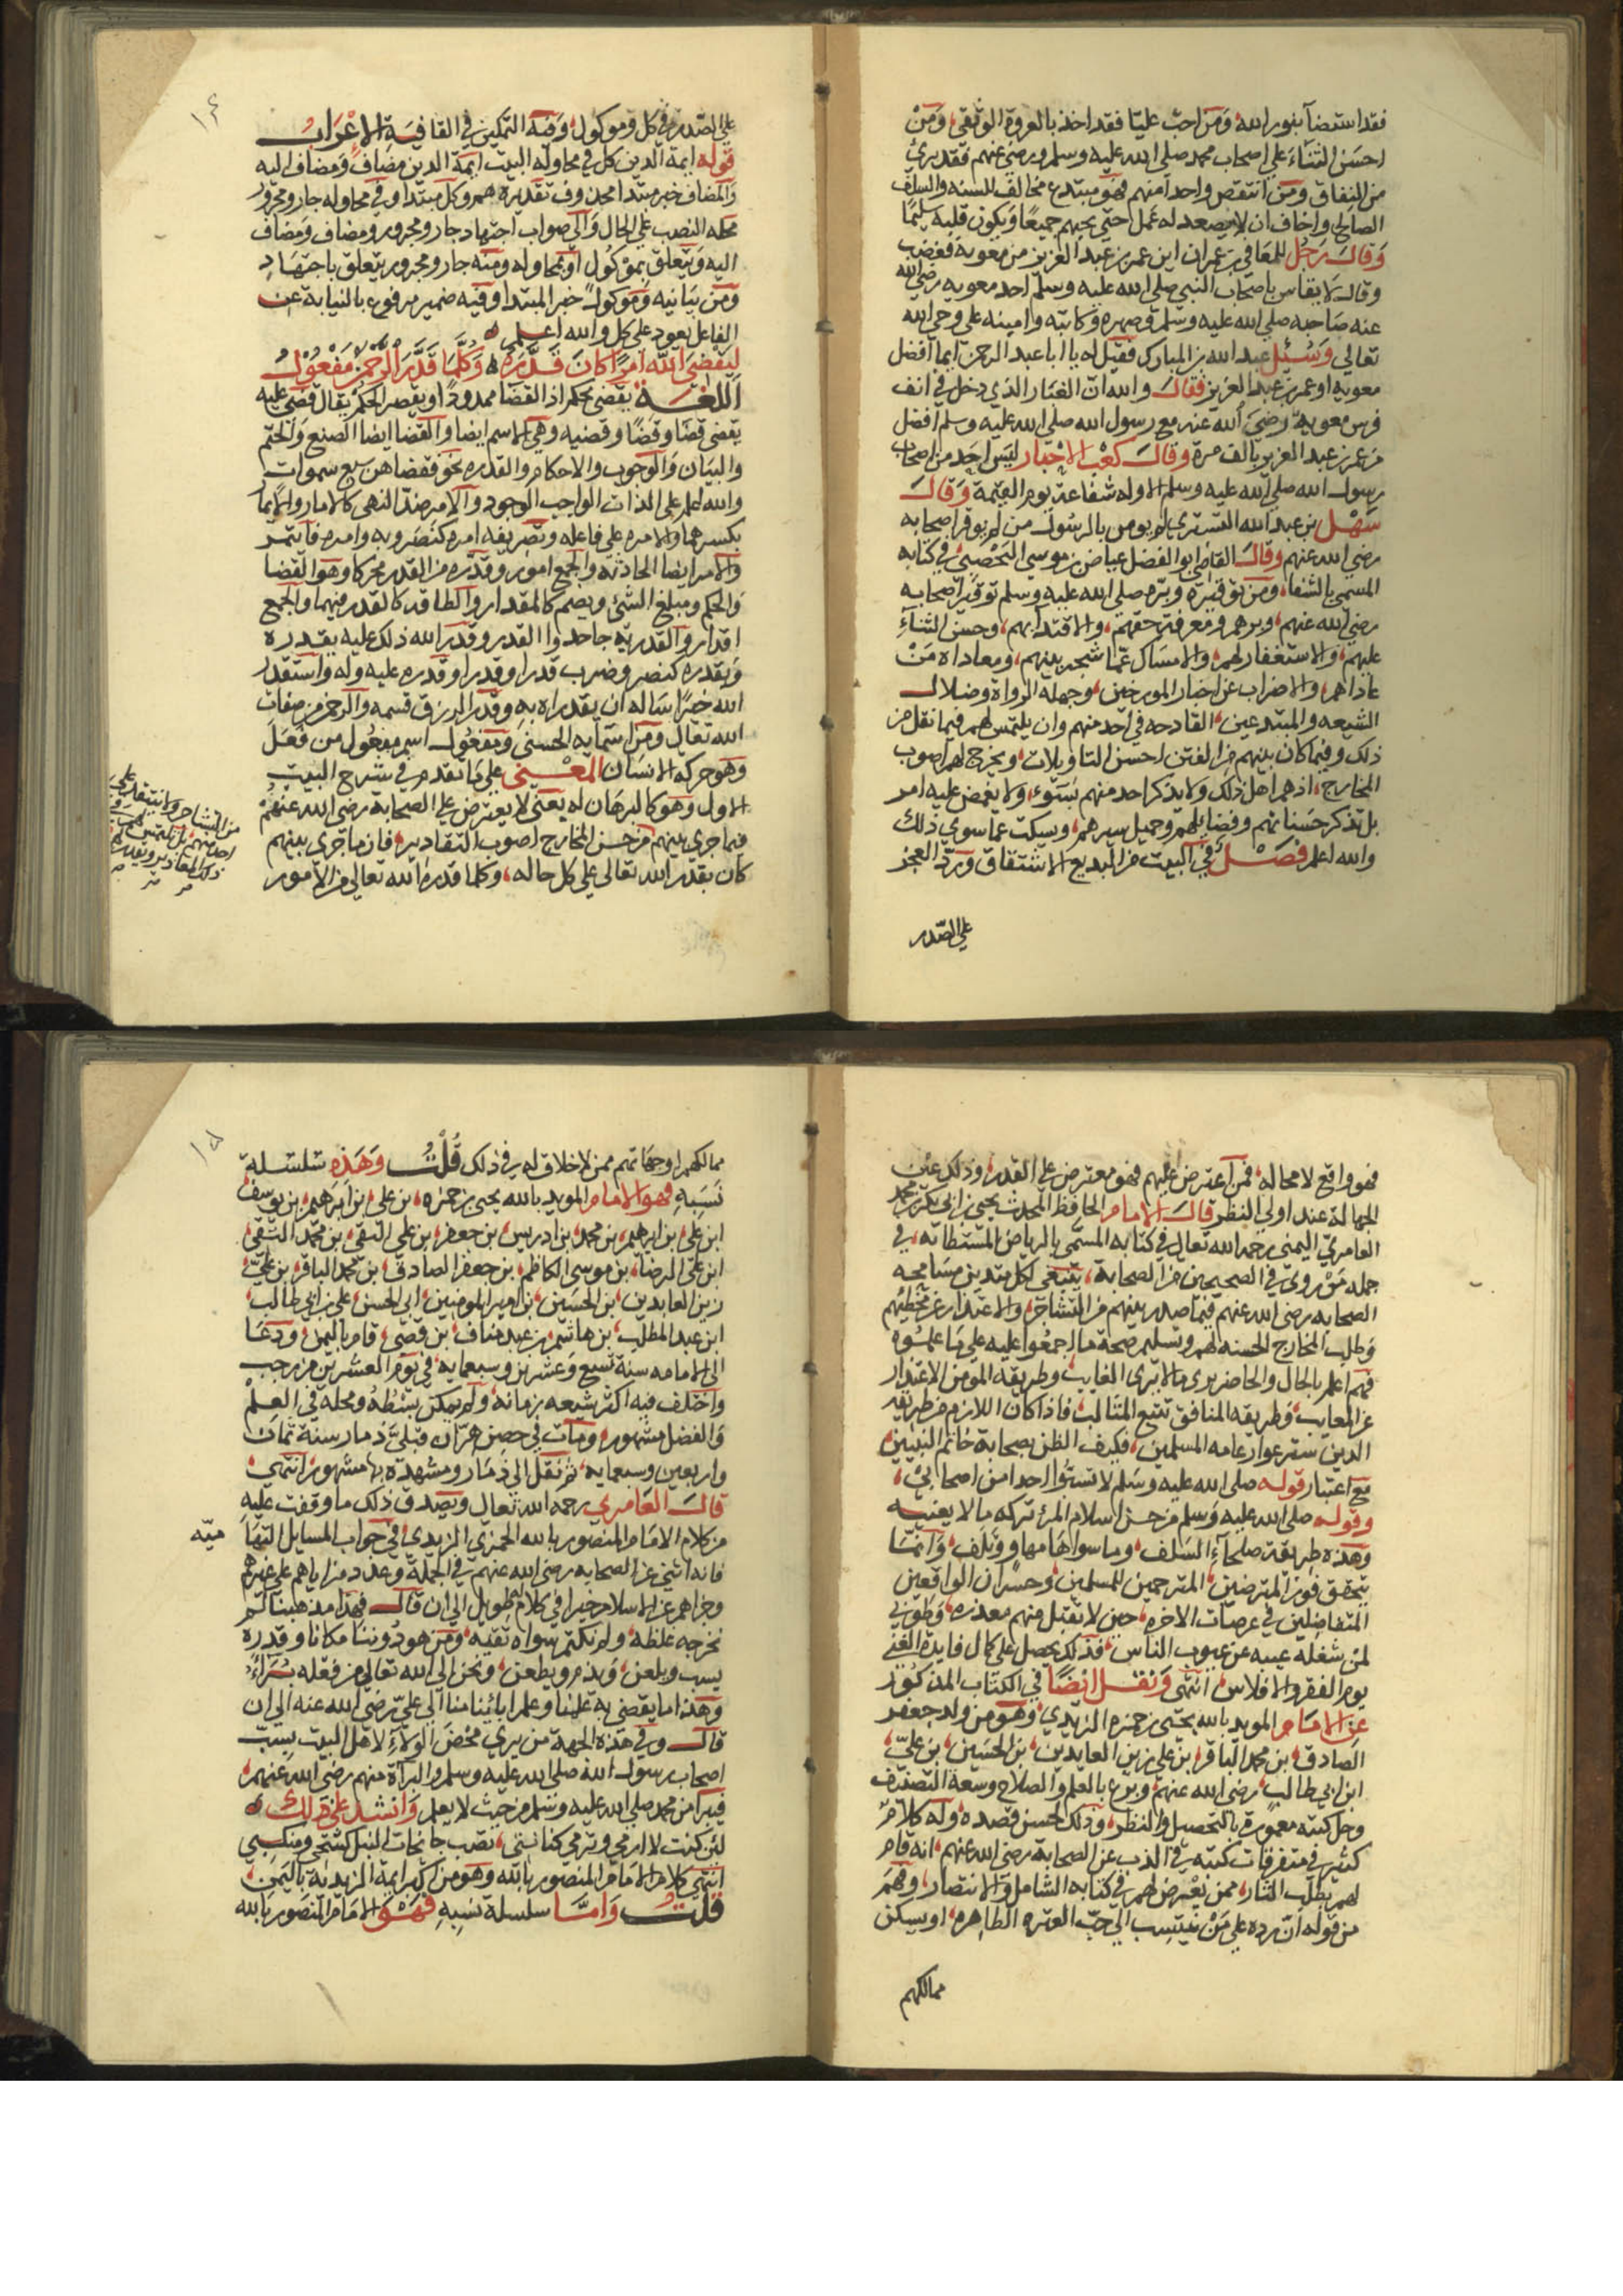 فقد استضآ بنور الله ومن احب عليا فقد اخذ بالعروة الوثقى ومن
احسن الثناء على اصحاب محمد صلى الله عليه وسلم ورضي عنهم فقد برئ
من النفاق ومن انتقص واحدا منهم فهو مبتدع مخالف للسنه والسلف
الصالح واخاف ان لا يصعد له عمل حتى يحبهم جميعا ويكون قلبه سليما
وقال رجل للمعافى بن عمران اين عمر بن عبد العزيز من معويه فغضب
وقال لا يقاس باصحاب النبي صلى الله عليه وسلم احد معويه رضي الله
عنه صاحبه صلى الله عليه وسلم وصهره وكاتبه وامينه على وحي الله
تعالى وسئل عبد الله بن المبارك فقيل له يا ابا عبد الرحمن ايما افضل
معويه او عمر بن عبد العزيز فقال والله ان الغبار الذي دخل في انف
فرس معوية رضي الله عنه مع رسول الله صلى الله عليه وسلم افضل
من عمر بن عبد العزيز بالف مرة وقال كعب الاحبار ليس احد من اصحاب
رسول الله صلى الله عليه وسلم الا وله شفاعة يوم القيمة وقال
سهل بن عبد الله التستري لم يومن بالرسول من لم يوقر اصحابه
رضي الله عنهم وقال القاضي ابو الفضل عياض بن موسى اليحصبي في كتابه
المسمى بالشفا ومن توقيره وبره صلى الله عليه وسلم توقير اصحابه
رضي الله عنهم وبرهم ومعرفة حقهم والاقتدا بهم وحسن الثناء
عليهم والاستغفار لهم والامساك عما شجر بينهم ومعاداة من
عاداهم والاضراب عن اخبار المورخين وجهلة الرواة وضلال
الشيعه والمبتدعين القادحه في احد منهم وان يلتمس لهم فيما نقل من
ذلك وفيما كان بينهم من الفتن احسن التاويلات ويخرج لهم اصوب
المخارج اذ هم اهل ذلك ولا يذكر احد منهم بسوء ولا يغمض عليه امر
بل تذكر حسناتهم وفضائلهم وجميل سيرهم ويسكت عما سوى ذلك
والله اعلم فصل في البيت من البديع الاشتقاق ورد العجز
على الصدر
على الصدر في كل وموكول وفيه التمكين في القافية الاعراب
قوله ايمة الدين كل في محاوله البيت ايمة الدين مضاف ومضاف اليه
والمضاف خبر مبتدا محذوف تقديره هم وكل مبتدا وفي محاوله جار ومجرور
محله النصب على الحال والى صواب اجتهاد جار ومجرور ومضاف ومضاف
اليه ويتعلق بموكول او بمحاوله ومنه جار ومجرور يتعلق باجتهاد
ومن بيانيه وموكول خبر المبتدا وفيه ضمير مرفوع بالنيابة عن
الفاعل يعود على كل والله اعلم
ليقضي الله امرا كان قدره وكلما قدر الرحمن مفعول
اللغة يقضي يحكم اذ القضا ممدودا ويقصر الحكم يقال قضى عليه
يقضي قضا وقضا وقضيه وهي الاسم ايضا والقضا ايضا الصنع والحتم
والبيان والوجوب والاحكام والقدره نحو فقضاهن سبع سموات
والله اعلم على الذات الواجب الوجود والامر ضد النهي كالامار والايمار
بكسرهما والامره على فاعله وتصريفه امره كنصره وبه وامره فاتمر
والامر ايضا الحادثه والجمع امور وقدره من القدر محركا وهو القضا
والحكم ومبلغ الشئ ويضم كالمقدار والطاقه كالقدر فيهما والجمع
اقدار والقدريه جاحدوا القدر وقدر الله ذلك عليه يقدره
ويقدره كنصر وضرب قدرا وقدرا وقدره عليه وله واستقدر
الله خيرا ساله ان يقدر له به وقدر الرزق قسمه والرحمن من صفات
الله تعالى ومن اسمايه الحسنى ومفعول اسم مفعول من فعل
وهو حركة الانسان المعنى على ما تقدم في شرح البيت
الاول وهو كالبرهان له يعنى لا يعترض على الصحابة رضي الله عنهم
فيما جرى بينهم من حسن المخارج اصوب التقادير فان ما جرى بينهم
كان بقدر الله تعالى على كل حاله وكلما قدره الله تعالى من الامور
من التشاجر ولا ينتقد على
احد منهم بل يلتمس لهم في
ذلك المعاذير
فهو واقع لا محاله فمن اعترض عليهم فهو معترض على القدر وذلك عين
الجهالة عند اولي النظر قال الامام الحافظ المحدث يحيى بن ابي بكر بن محمد
العامري اليمني رحمه الله تعالى في كتابه المسمى بالرياض المستطابه في
جمله من روي في الصحيحين من الصحابة ينبغي لكل متدين مسامحه
الصحابه رضي الله عنهم فيما صدر بينهم من التشاجر والاعتذار عن مخطئهم
وطلب المخارج الحسنه لهم وتسليم صحة ما اجمعوا عليه على ما علموه
فهم اعلم بالحال والحاضر يرى ما لا يرى الغايب وطريقة المومن الاعتذار
عن المعايب وطريقه المنافق تتبع المثالب فاذا كان اللازم من طريقه
الدين ستر عوار عامه المسلمين فكيف الظن بصحابة خاتم النبيين
مع اعتبار قوله صلى الله عليه وسلم لا تسبوا احدا من اصحابي
وقوله صلى الله عليه وسلم من حسن اسلام المرء تركه ما لا يعنيه
وهذه طريقة صلحآء السلف وما سواها مهاو وتلف وانما
يتحقق فوز المترضين المترحمين للمسلمين وخسران الواقعين
المتفاضلين في عرصات الاخره حين لا تقبل منهم معذره وطوبى
لمن شغله عيبه عن عيوب الناس فذلك يحصل على كمال فايدة الغنى
يوم الفقر والافلاس انتهى ونقل ايضا في الكتاب المذكور
عن الامام المويد بالله يحيى بن حمزه الزيدي وهو من ولد جعفر
الصادق بن محمد الباقر بن علي زين العابدين بن الحسين بن علي
ابن ابي طالب رضي الله عنهم وبرع بالعلم والصلاح وسعة التصنيف
وجل كتبه معمورة بالتحصيل والنظر وذلك لحسن قصده وله كلام
كثير في متفرقات كتبه في الذب عن الصحابة رضي الله عنهم انه قام
لهم بطلب الثار ممن يعترض لهم في كتابه الشامل والانتصار وفهم
من قوله ان رده على من ينتسب الى حب العتره الطاهره او يسكن
ممالكهم
ممالكهم او جهاتهم ممن لا خلاق لهم في ذلك قلت وهذه سلسلة
نسبه فهو الامام المويد بالله يحيى بن حمزه بن علي بن ابرهيم بن يوسف
ابن علي بن ابرهيم بن محمد بن ادريس بن جعفر بن علي التقي بن محمد التقي
ابن علي الرضا بن موسى الكاظم بن جعفر الصادق بن محمد الباقر بن علي
زين العابدين بن الحسين بن امير المومنين ابي الحسن علي بن ابي طالب
ابن عبد المطلب بن هاشم بن عبد مناف بن قصي قام باليمن ودعا
الى الامامه سنة تسع وعشرين وسبعمايه في يوم العشرين من رجب
واختلف فيه اكثر شيعه زمانه ولم يمكن بسطه ومحله في العلم
والفضل مشهور ومات في حصن هران قبلي ذمار سنة ثمان
واربعين وسبعمايه ثم نقل الى ذمار ومشهده بها مشهور انتهى
قال العامري رحمه الله تعالى ويصدق ذلك ما وقفت عليه
من كلام الامام المنصور بالله الحمزي الزيدي في جواب المسايل التها
ميه
فانه اثنى عن الصحابه رضي الله عنهم في الجملة وعدد مزاياهم على غيرهم
وجزاهم عن الاسلام خيرا في كلام طويل الى ان قال فهذا مذهبنا لم
نخرجه غلظه ولم نكتم سواه تقيه ومن هو دوننا مكانا وقدره
يسب ويلعن ويذم ويطعن ونحن الى الله تعالى من فعله برآء
وهذا ما يقضي به علمنا وعلم ابائنا منا الى علي رضي الله عنه الى ان
قال وفي هذه الجهة من يري محض الولآء لاهل البيت بسب
اصحاب رسول الله صلى الله عليه وسلم والبرآة منهم رضي الله عنهم
فيبرا من محمد صلى الله عليه وسلم من حيث لا يعلم وانشد على ذلك
لئن كنت لا ارمي وترمي كنانتي تصب جانحات النبل كشحي ومنكبي
انتهى كلام الامام المنصور بالله وهو من اكبر ايمة الزيديه باليمن
قلت واما سلسلة نسبه فهو الامام المنصور بالله